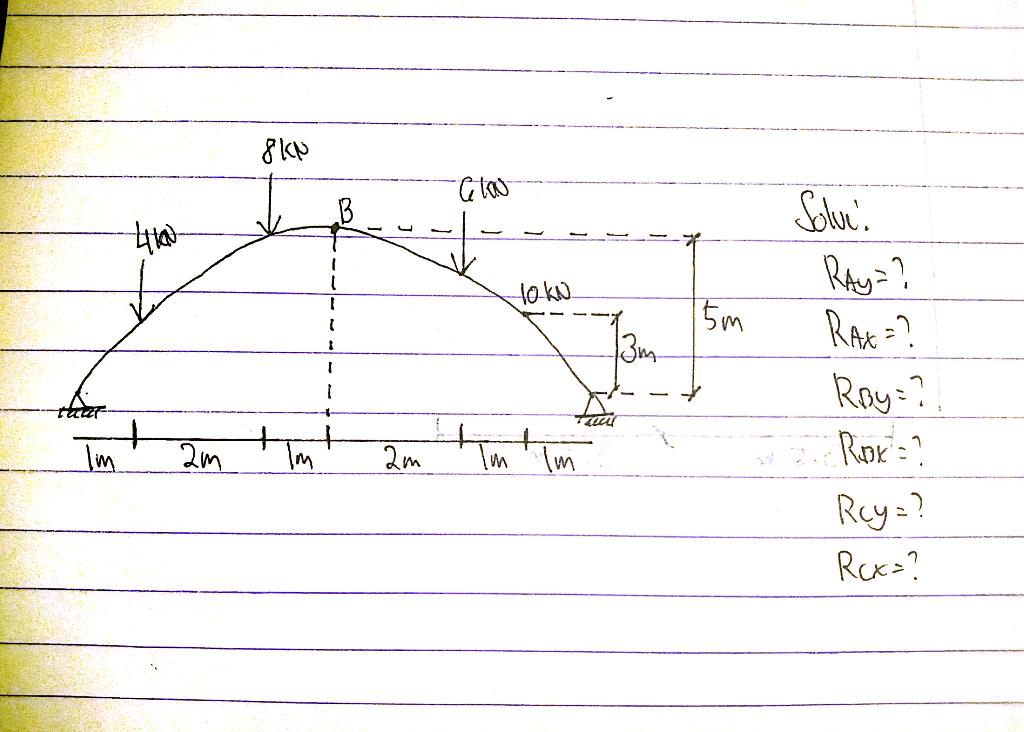 8kN
B
6kN
4kN
10kN
5m
3m
1m 2m 1m 2m 1m 1m
Solve:
RAy=?
RAx=?
RBy=?
RBx=?
RCy=?
RCx=?